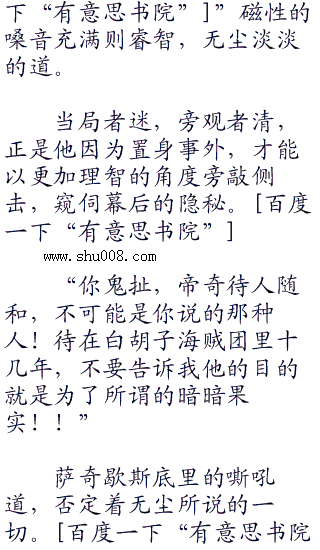 下“有意思书院”]”磁性的
嗓音充满则睿智，无尘淡淡
的道。
当局者迷，旁观者清，
正是他因为置身事外，才能
以更加理智的角度旁敲侧
击，窥伺幕后的隐秘。[百度
一下“有意思书院”]
www.shu008.com
“你鬼扯，帝奇待人随
和，不可能是你说的那种
人！待在白胡子海贼团里十
几年，不要告诉我他的目的
就是为了所谓的暗暗果
实！！”
萨奇歇斯底里的嘶吼
道，否定着无尘所说的一
切。[百度一下“有意思书院